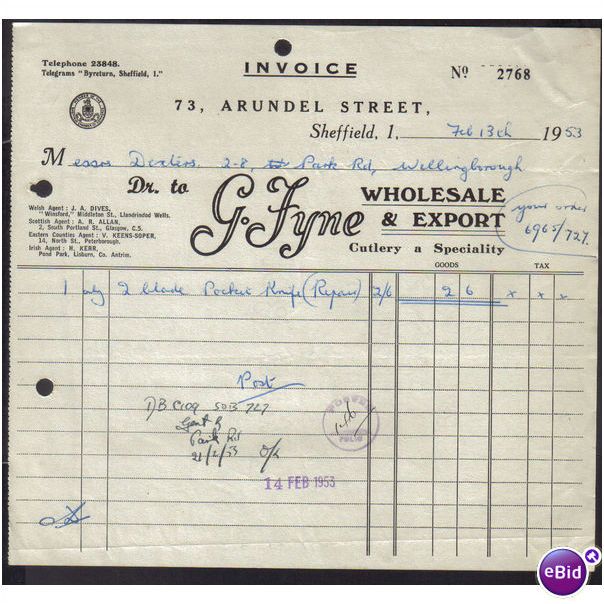 Telephone 23848.
Telegrams "Byreturn, Sheffield, 1."
INVOICE
No 2768
73, ARUNDEL STREET,
Sheffield, 1, Feb 13th 1953
Messrs Dexters. 2-8, Park Rd, Wellingborough
Dr. to
G. Fyne
WHOLESALE
& EXPORT
Cutlery a Speciality
your order
6965/727.
Welsh Agent : J. A. DIVES.
"Winsford," Middleton St., Llandrindod Wells.
Scottish Agent : A. R. ALLAN,
2, South Portland St., Glasgow, C.5.
Eastern Counties Agent : V. KEENS-SOPER,
14, North St., Peterborough.
Irish Agent : H. KERR,
Pond Park, Lisburn, Co. Antrim.
GOODS TAX
1 only 2 blade Pocket Knife (Repair) 2/6 2 6 x x x
Post
Park Rd
21/2/53 O/K
FOLIO
14 FEB 1953
eBid